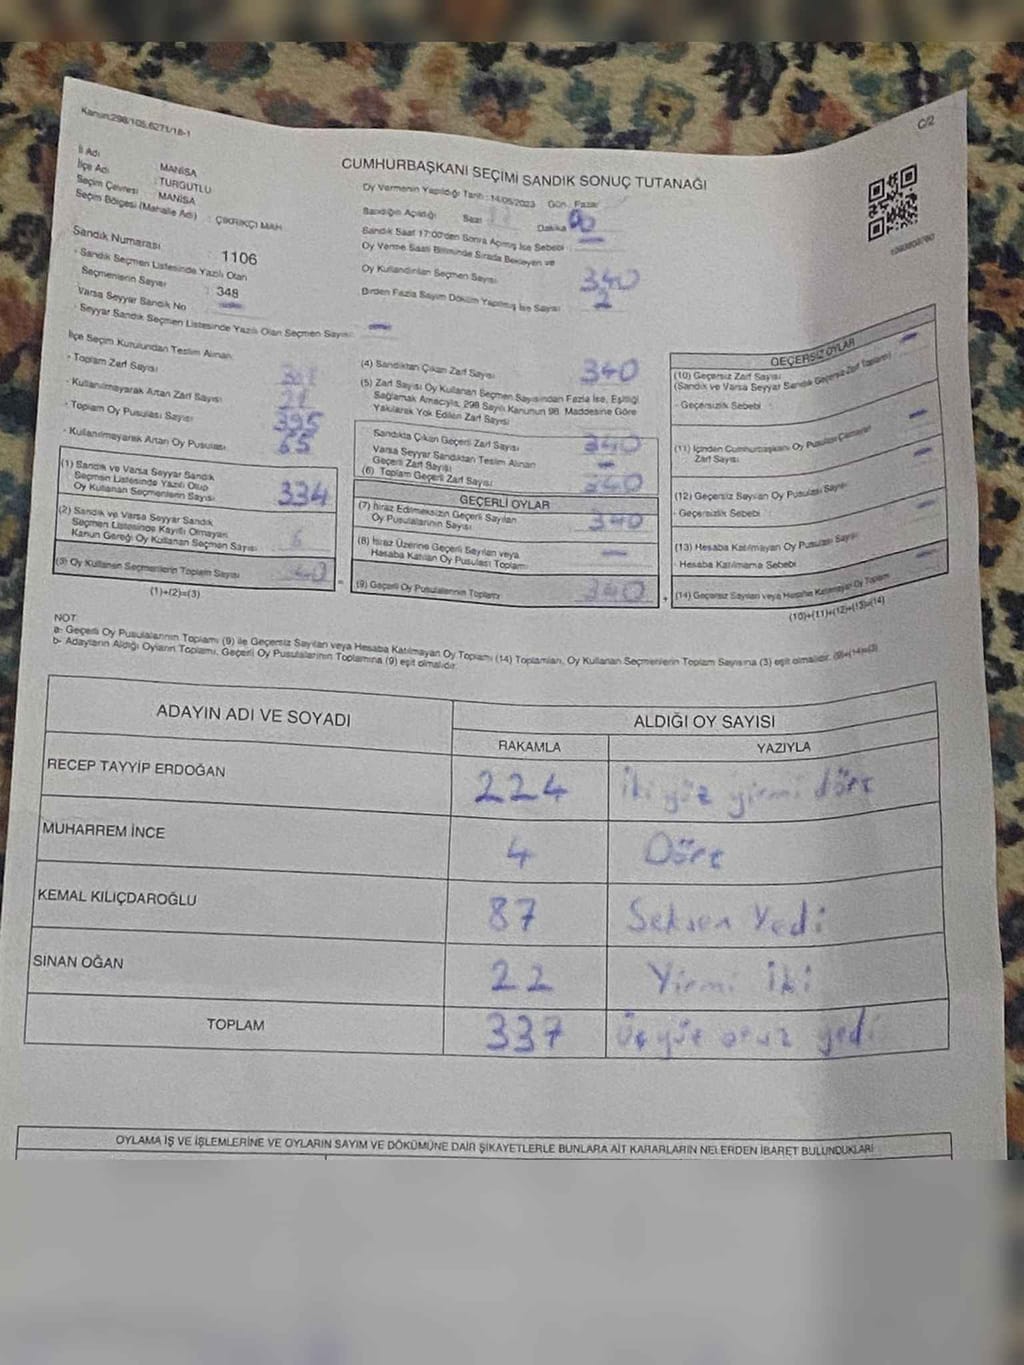 Kanun:298/105,6271/18-1
C/2
CUMHURBAŞKANI SEÇİMİ SANDIK SONUÇ TUTANAĞI
İl Adı : MANİSA
İlçe Adı : TURGUTLU
Seçim Çevresi : MANİSA
Seçim Bölgesi (Mahalle Adı) : ÇIKRIKÇI MAH
Sandık Numarası : 1106
- Sandık Seçmen Listesinde Yazılı Olan
Seçmenlerin Sayısı : 348
Varsa Seyyar Sandık No
- Seyyar Sandık Seçmen Listesinde Yazılı Olan Seçmen Sayısı
Oy Vermenin Yapıldığı Tarih : 14/05/2023 Gün : Pazar
Sandığın Açıldığı Saat Dakika
Sandık Saat 17:00'den Sonra Açılmış İse Sebebi
Oy Verme Saati Bitiminde Sırada Bekleyen ve
Oy Kullandırılan Seçmen Sayısı 340
Birden Fazla Sayım Döküm Yapılmış İse Sayısı 2
İlçe Seçim Kurulundan Teslim Alınan
- Toplam Zarf Sayısı
- Kullanılmayarak Artan Zarf Sayısı
- Toplam Oy Pusulası Sayısı 395
- Kullanılmayarak Artan Oy Pusulası
(1) Sandık ve Varsa Seyyar Sandık
Seçmen Listesinde Yazılı Olup
Oy Kullanan Seçmenlerin Sayısı 334
(2) Sandık ve Varsa Seyyar Sandık
Seçmen Listesinde Kayıtlı Olmayan
Kanun Gereği Oy Kullanan Seçmen Sayısı 6
(3) Oy Kullanan Seçmenlerin Toplam Sayısı
(1)+(2)=(3)
(4) Sandıktan Çıkan Zarf Sayısı 340
(5) Zarf Sayısı Oy Kullanan Seçmen Sayısından Fazla İse, Eşitliği
Sağlamak Amacıyla, 298 Sayılı Kanunun 98. Maddesine Göre
Yakılarak Yok Edilen Zarf Sayısı
Sandıkta Çıkan Geçerli Zarf Sayısı 340
Varsa Seyyar Sandıktan Teslim Alınan
Geçerli Zarf Sayısı
(6) Toplam Geçerli Zarf Sayısı 340
GEÇERLİ OYLAR
(7) İtiraz Edilmeksizin Geçerli Sayılan
Oy Pusulalarının Sayısı 340
(8) İtiraz Üzerine Geçerli Sayılan veya
Hesaba Katılan Oy Pusulası Toplamı
(9) Geçerli Oy Pusulalarının Toplamı 340
GEÇERSİZ OYLAR
(10) Geçersiz Zarf Sayısı
(Sandık ve Varsa Seyyar Sandık Geçersiz Zarf Toplamı)
- Geçersizlik Sebebi :
(11) İçinden Cumhurbaşkanı Oy Pusulası Çıkmayan
Zarf Sayısı
(12) Geçersiz Sayılan Oy Pusulası Sayısı
- Geçersizlik Sebebi :
(13) Hesaba Katılmayan Oy Pusulası Sayısı
- Hesaba Katılmama Sebebi
(14) Geçersiz Sayılan veya Hesaba Katılmayan Oy Toplamı
(10)+(11)+(12)+(13)=(14)
NOT:
a- Geçerli Oy Pusulalarının Toplamı (9) ile Geçersiz Sayılan veya Hesaba Katılmayan Oy Toplamı (14) Toplamları, Oy Kullanan Seçmenlerin Toplam Sayısına (3) eşit olmalıdır. (9)+(14)=(3)
b- Adayların Aldığı Oyların Toplamı, Geçerli Oy Pusulalarının Toplamına (9) eşit olmalıdır.
ADAYIN ADI VE SOYADI ALDIĞI OY SAYISI
RAKAMLA YAZIYLA
RECEP TAYYİP ERDOĞAN 224 İki yüz yirmi dört
MUHARREM İNCE 4 Dört
KEMAL KILIÇDAROĞLU 87 Seksen Yedi
SİNAN OĞAN 22 Yirmi İki
TOPLAM 337 Üç yüz otuz yedi
OYLAMA İŞ VE İŞLEMLERİNE VE OYLARIN SAYIM VE DÖKÜMÜNE DAİR ŞİKAYETLERLE BUNLARA AİT KARARLARIN NELERDEN İBARET BULUNDUKLARI